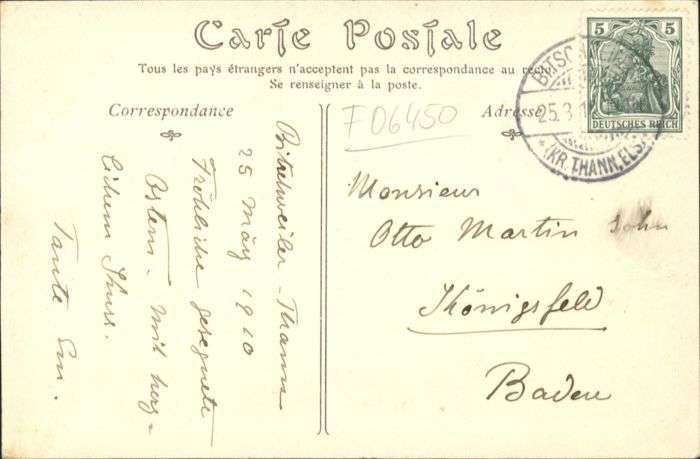 Carte Postale
Tous les pays étrangers n'acceptent pas la correspondance au recto
Se renseigner à la poste.
Correspondance
Adresse
F 06450
5 5
DEUTSCHES REICH
BITSC
25.3.1
* (KR. THANN, ELS.) *
Bitschweiler-Thann
25 März 1910
Fröhliche gesegnete
Ostern. Mit herz-
lichem
Tante Em.
Monsieur
Otto Martin John
Königsfeld
Baden